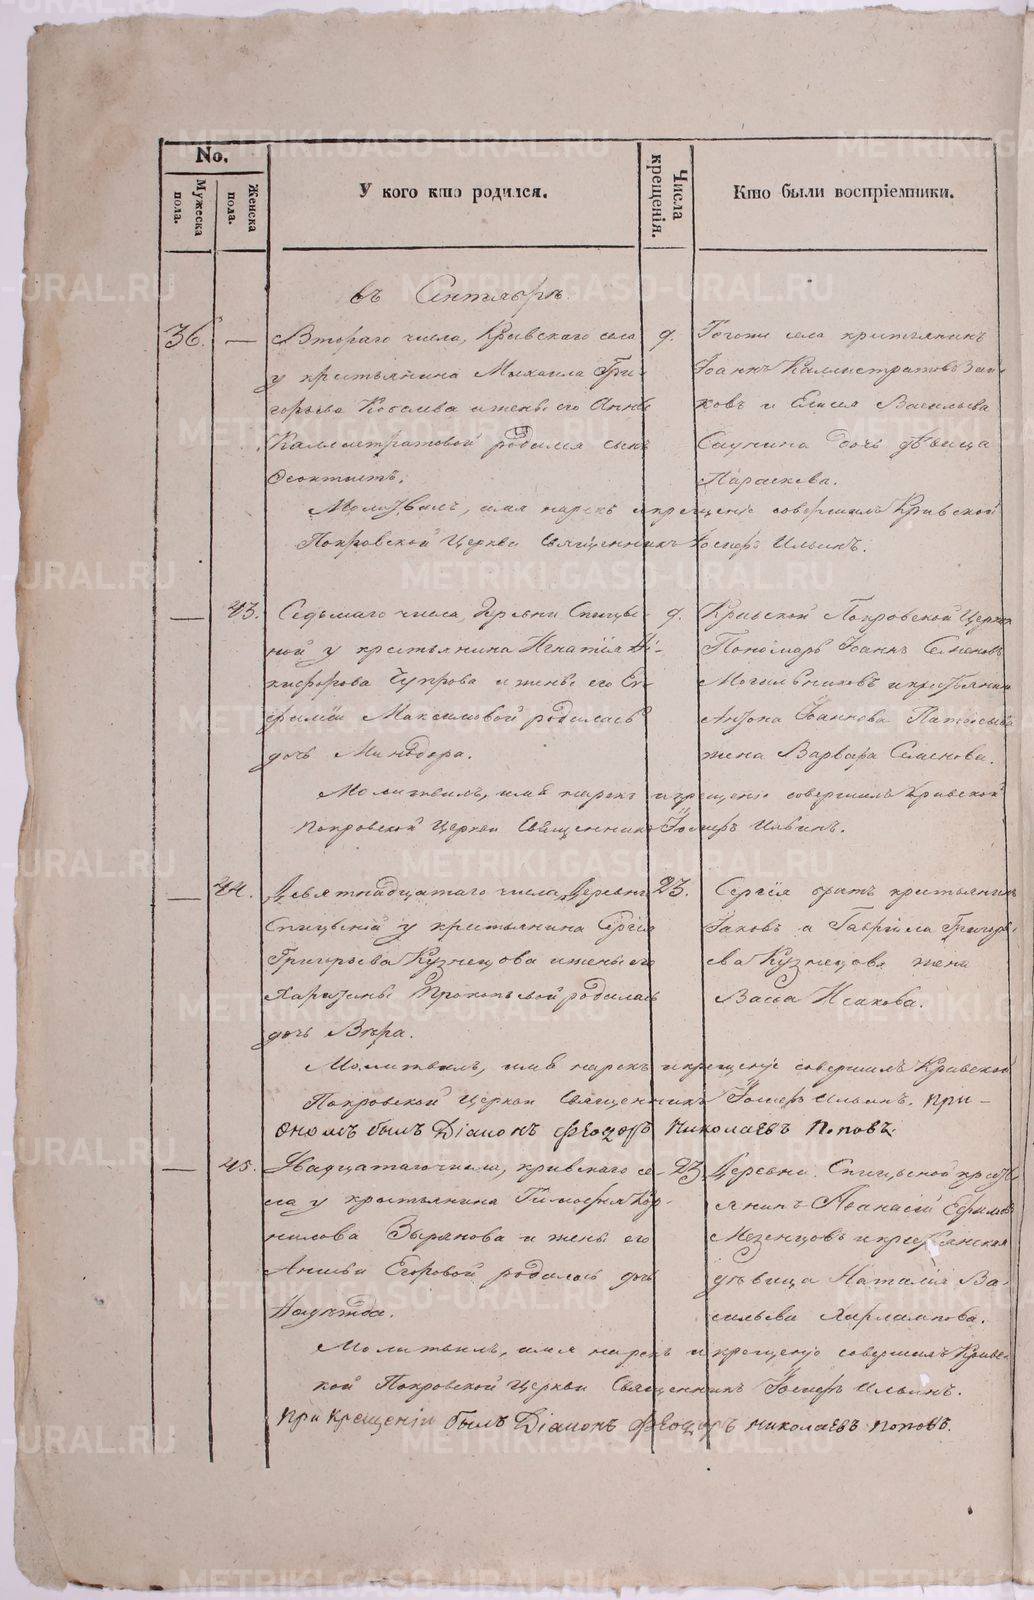 No.
Мужеска пола.
Женска пола.
У кого кто родился.
Числа крещенія.
Кто были воспріемники.
въ Сентябрѣ.
36. — Втораго числа, Кривскаго села
у крестьянина Михаила Гри-
горьева и жены его Анны
Каллистратовой родился сынъ
Феоктистъ.
9.
села крестьянинъ
Іоаннъ Каллистратовъ
ковъ и Васильева
Саунина дочь дѣвица
Параскева.
Молитвилъ, имя нарекъ и крещеніе совершилъ Кривской
Покровской Церкви Священникъ Іосифъ Ильинъ.
— 43. Седьмаго числа, деревни Спицы-
ной у крестьянина Игнатія Ни-
кифорова Чупрова и жены его Ев-
фиміи Максимовой родилась
дочь Минодора.
9.
Кривской Покровской Церкви
Пономарь Іоаннъ Семеновъ
Могильниковъ и крестьянина
Антона Іоаннова
жена Варвара Семенова.
Молитвилъ, имя нарекъ и крещеніе совершилъ Кривской
Покровской Церкви Священникъ Іосифъ Ильинъ.
— 44. Девятнадцатаго числа, Деревни
Спицыной у крестьянина Сергія
Григорьева Кузнецова и жены его
Харитины Прокопьевой родилась
дочь Вѣра.
23.
Сергія братъ крестьянинъ
Іаковъ а Гавріила Григорь-
ева Кузнецова жена
Васса Исакова.
Молитвилъ, имя нарекъ и крещеніе совершилъ Кривской
Покровской Церкви Священникъ Іосифъ Ильинъ. При-
ономъ былъ Діаконъ Феодоръ Николаевъ Поповъ.
— 45. Двадцатаго числа, кривскаго се-
ла у крестьянина Тимофея Кор-
нилова Зырянова и жены его
Анисьи Егоровой родилась дочь
Надежда.
23.
Деревни Спицыной крест-
янинъ Афанасій Ефимовъ
Мезенцовъ и крестьянская
дѣвица Наталія Ва-
сильева Харлампова.
Молитвилъ, имя нарекъ и крещеніе совершилъ Кривс-
кой Покровской Церкви Священникъ Іосифъ Ильинъ.
При крещеніи былъ Діаконъ Феодоръ Николаевъ Поповъ.
METRIKI.GASO-URAL.RU